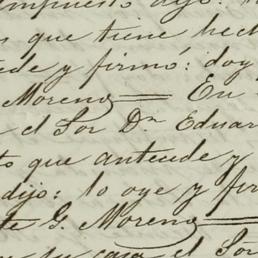 impuesto dijo:
os que tiene hech
cede y firmó: doy
Moreno == En
a el Sor Dn Eduar
to que antecede y
dijo: lo oye y fir
te G. Moreno ==
su casa el Sor